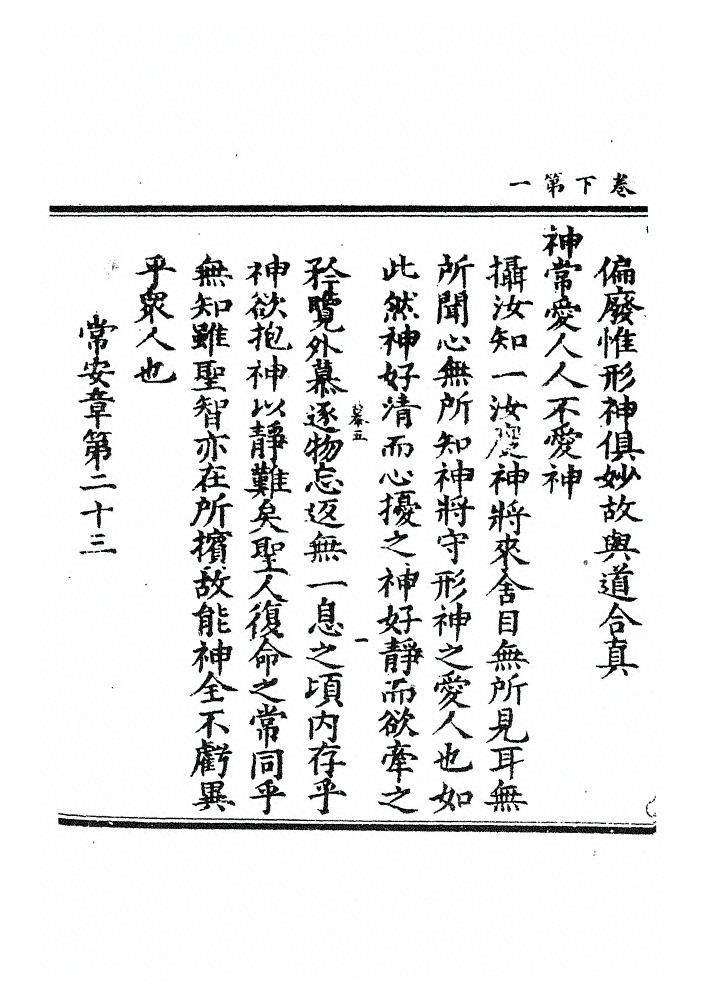 卷下第一
偏廢惟形神俱妙故與道合真
神常愛人人不愛神
攝汝知一汝度神將來舍目無所見耳無
所聞心無所知神將守形神之愛人也如
此然神好清而心擾之神好靜而欲牽之
一
㡒五
矜覽外慕逐物忘返無一息之頃內存乎
神欲抱神以靜難矣聖人復命之常同乎
無知雖聖智亦在所擯故能神全不虧異
乎眾人也
常安章第二十三